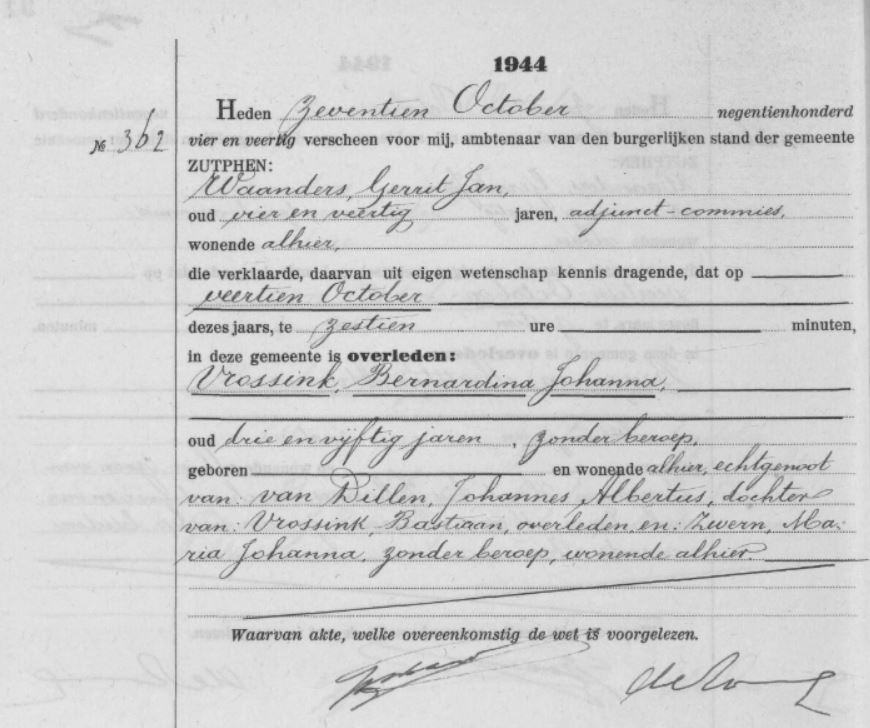 1944
Heden Zeventien October negentienhonderd
№ 362 vier en veertig verscheen voor mij, ambtenaar van den burgerlijken stand der gemeente
ZUTPHEN:
Waanders, Gerrit Jan,
oud vier en veertig jaren, adjunct-commies,
wonende alhier,
die verklaarde, daarvan uit eigen wetenschap kennis dragende, dat op
veertien October
dezes jaars, te zestien ure minuten,
in deze gemeente is overleden:
Vrossink, Bernardina Johanna,
oud drie en vijftig jaren, zonder beroep,
geboren en wonende alhier, echtgenoot
van: van Dillen, Johannes Albertus, dochter
van: Vrossink, Bastiaan, overleden, en: Zwern, Ma-
ria Johanna, zonder beroep, wonende alhier.
Waarvan akte, welke overeenkomstig de wet is voorgelezen.